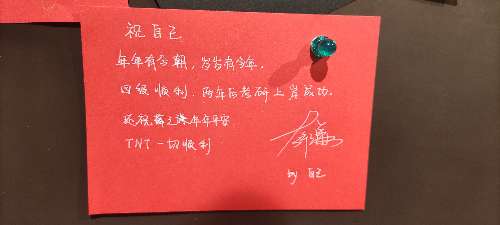 祝自己
年年有今朝，岁岁有今年.
四级顺利.两年后考研上岸成功.
还祝 年年平安
TNT一切顺利
by 自己